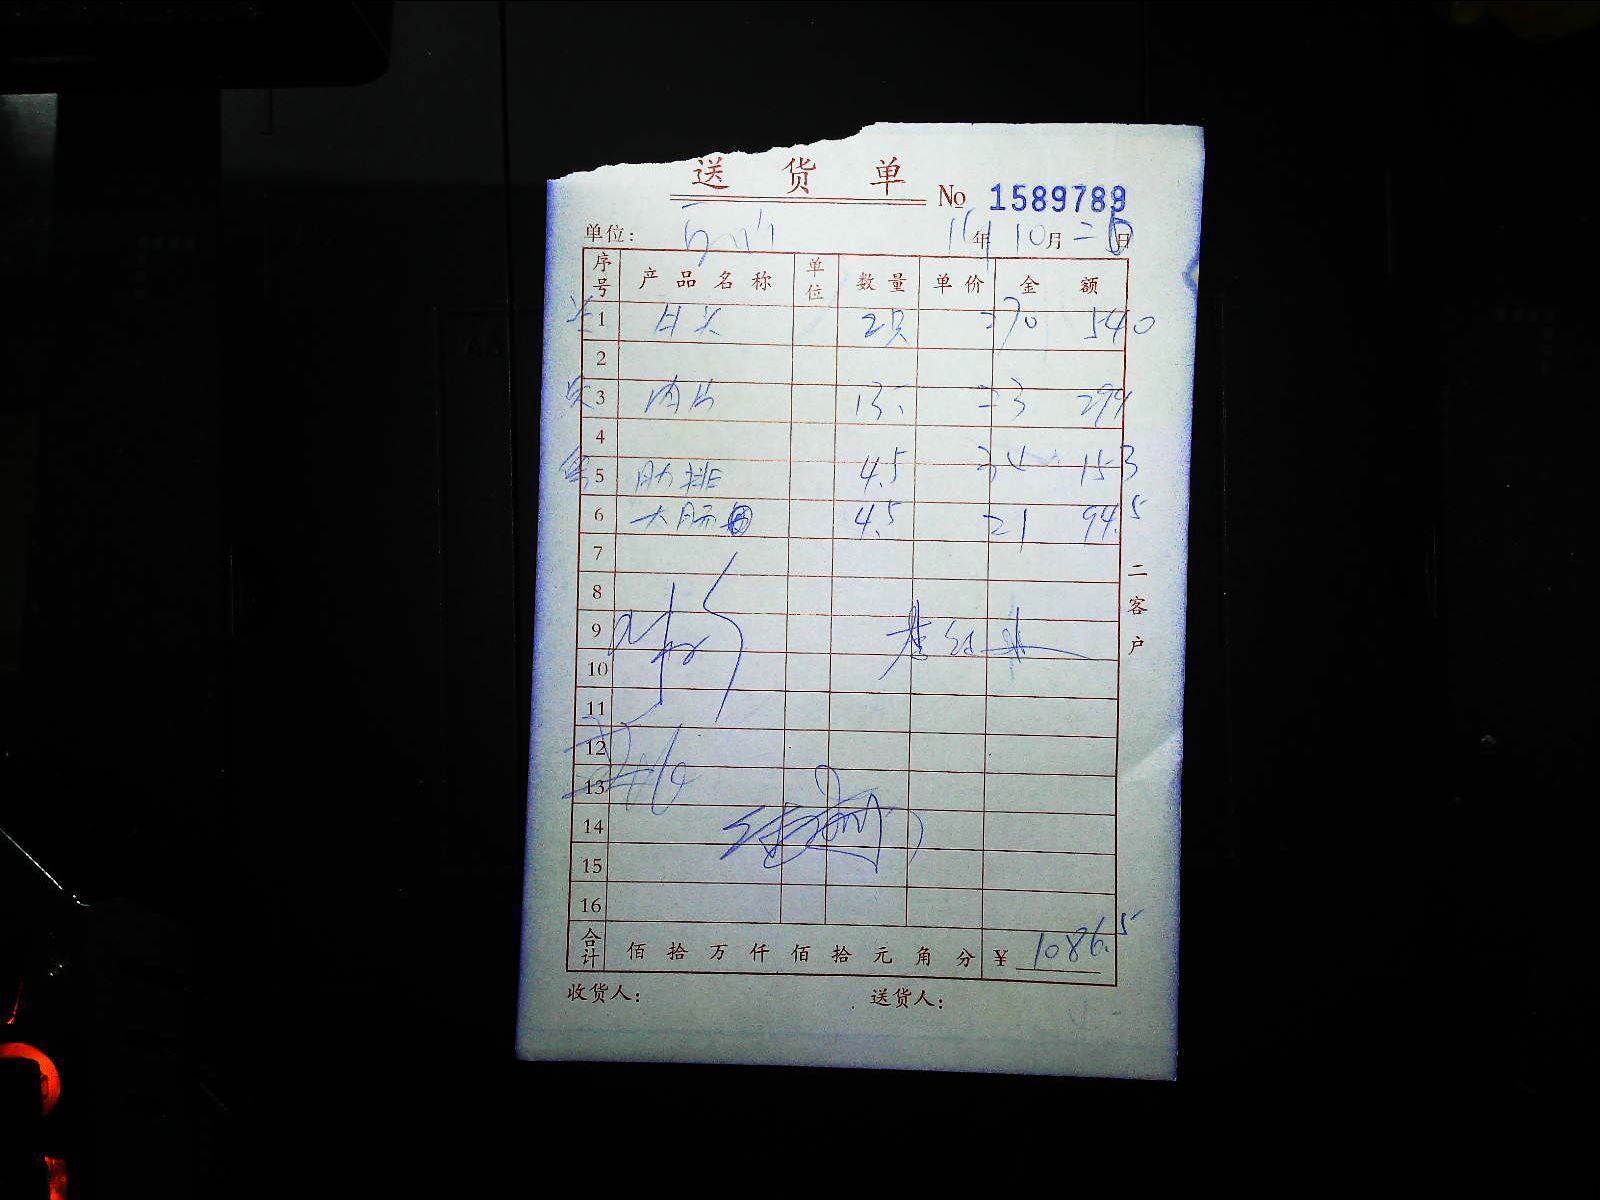 送货单
No 1589789
单位: 年 10月 日
序号 产品名称 单位 数量 单价 金额
1 2只 270 540
2
3 肉片 13 23 299
4
5 肋排 4.5 34 153
6 大肠 4.5 21 94.5
7
8
9
10
11
12
13
14
15
16
合计 佰拾万仟佰拾元角分 ¥ 1086.5
收货人: 送货人:
二客户